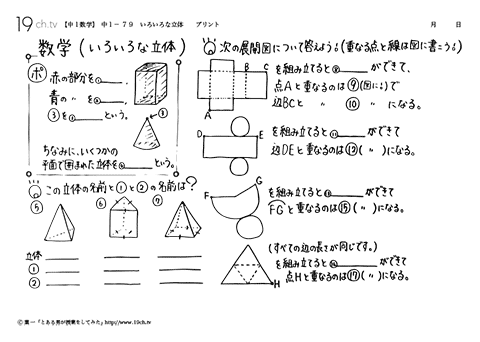 19ch.tv 【中1数学】 中1-79 いろいろな立体 プリント 月 日
数学(いろいろな立体)
ポ 赤の部分を①____、
青の 〃 を②____、
③を④____という。
③
ちなみに、いくつかの
平面で囲まれた立体を
____という。
この立体の名前と①と②の名前は?
⑤ ⑥ ⑦
立体
①
②
次の展開図について答えよう。(重なる点と線は図に書こう!)
A B C
を組み立てると⑧____ができて、
点Aと重なるのは⑨(図に!)で
辺BCと 〃 ⑩ 〃 になる。
D E
を組み立てると⑪____ができて
辺DEと重なるのは⑫(〃)になる。
F G
を組み立てると⑭____ができて
FGと重なるのは⑮(〃)になる。
(すべての辺の長さが同じです。)
を組み立てると⑯____ができて
点Hと重なるのは⑰(〃)になる。
H
© 葉一「とある男が授業をしてみた」http://www.19ch.tv